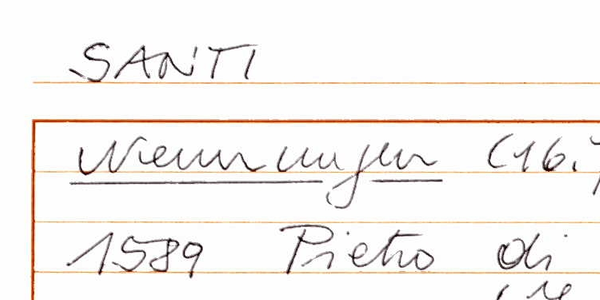 SANTI
Nennungen (16.
1589 Pietro di